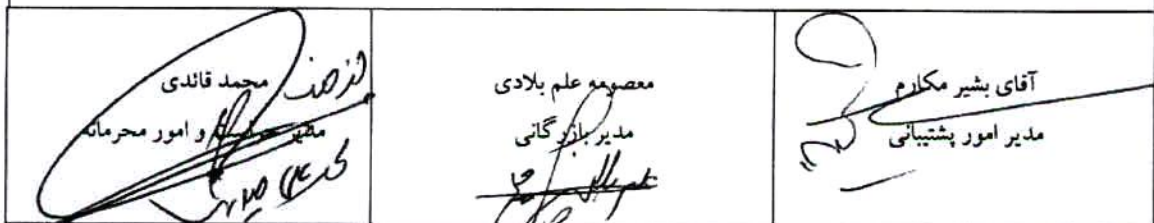 آقای بشیر مکارم
مدیر امور پشتیبانی
معصومه علم بلادی
مدیر بازرگانی
محمد قائدی
مدیر حراست و امور محرمانه